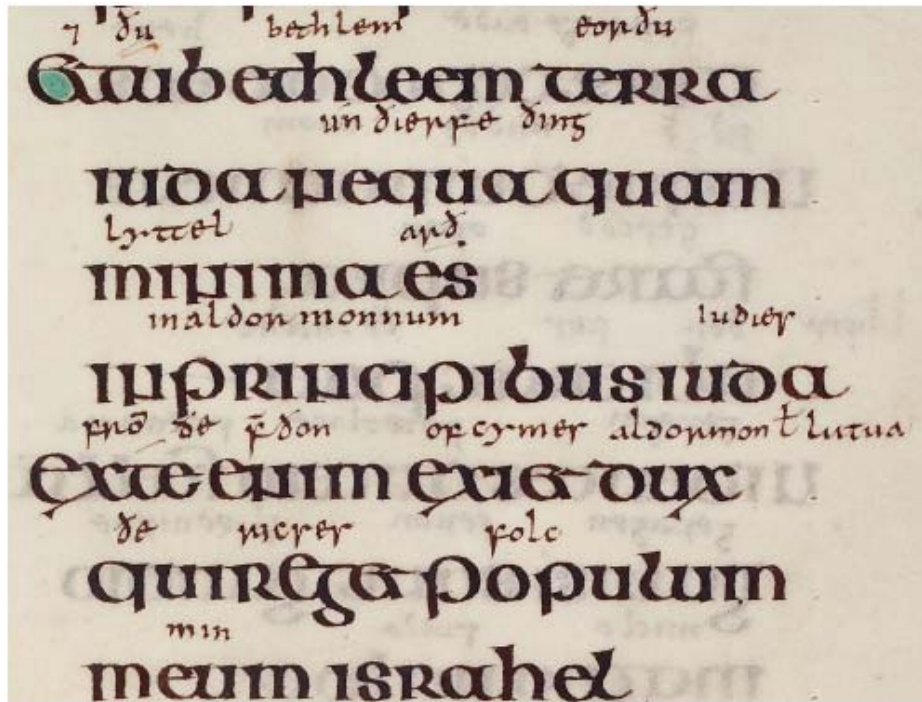 ⁊ ðu bethlem eorðu
Et tu bethleem terra
un ðierfe ðing
iuda nequaquam
lyttel arð
minima es
in aldor monnum
in principibus iuda
from ðe fordon of cymeð aldormon ł latua
ex te enim exiet dux
ðe ricser folc
qui reget populum
min
meum israhel